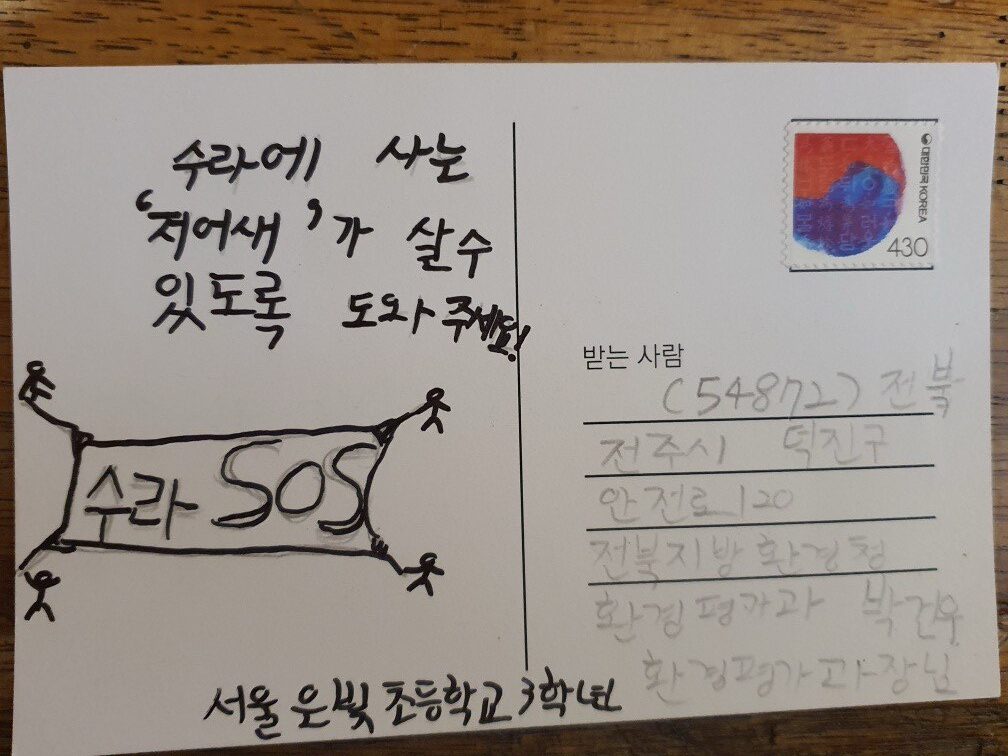 수라에 사는
'저어새'가 살수
있도록 도와주세요!
수라 SOS
서울 은빛초등학교 3학년
대한민국 KOREA
430
받는 사람
(54872) 전북
전주시 덕진구
안전로 120
전북지방환경청
환경평가과 박건우
환경평가과장님